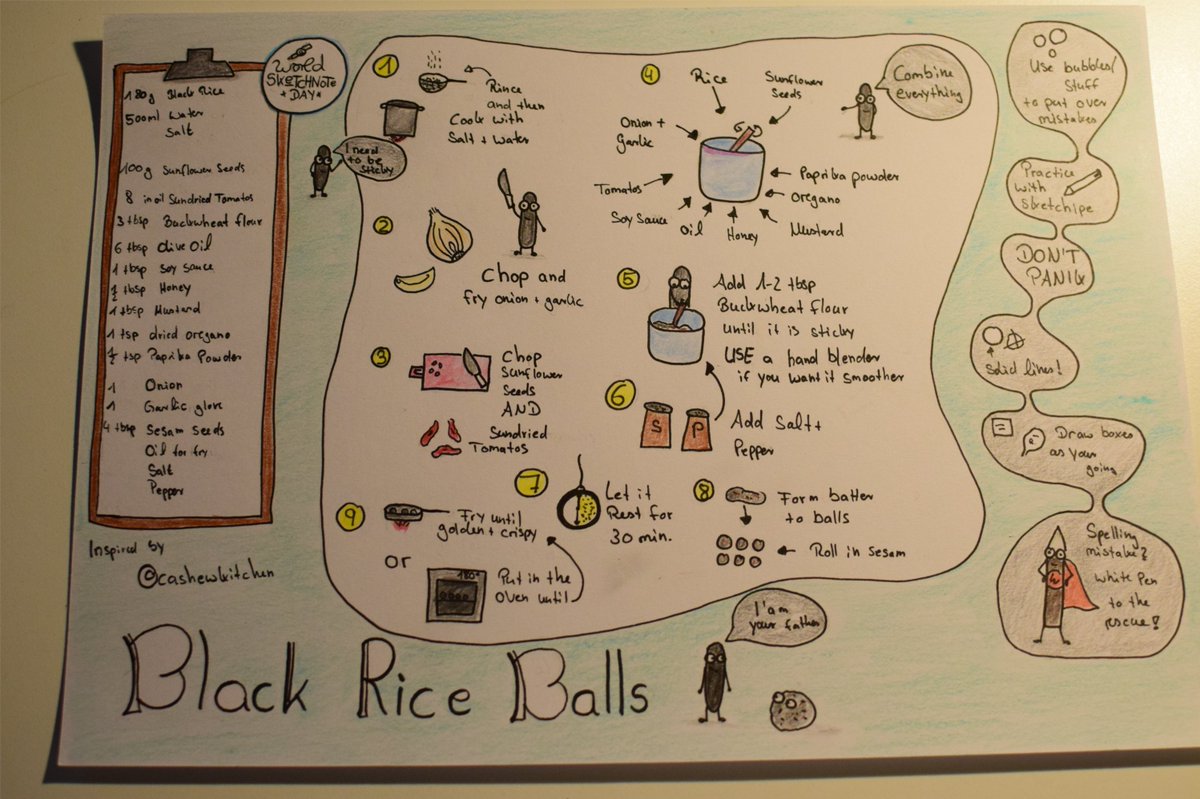 World
SkEtchNotE
DAY
180g Black Rice
500ml Water
Salt
100g Sunflower Seeds
8 in oil Sundried Tomatos
3 tbsp Buckwheat flour
6 tbsp Olive Oil
1 tbsp Soy Sauce
1/2 tbsp Honey
1 tbsp Mustard
1 tsp dried oregano
1/2 tsp Paprika Powder
1 Onion
1 Garlic glove
4 tbsp Sesam Seeds
Oil for fry
Salt
Pepper
Inspired by
@cashewkitchen
1
Rince
and then
Cook with
Salt + Water
I need
to be
sticky
2
Chop and
fry onion + garlic
3
Chop
Sunflower
Seeds
AND
Sundried
Tomatos
4
Rice
Sunflower
Seeds
Onion +
Garlic
Tomatos
Soy Sauce
Oil
Honey
Mustard
Oregano
Paprika powder
Combine
everything
5
Add 1-2 tbsp
Buckwheat flour
until it is sticky
USE a hand blender
if you want it smoother
6
S P
Add Salt +
Pepper
7
Let it
Rest for
30 min.
8
Form batter
to balls
Roll in Sesam
9
Fry until
golden + crispy
or
180°
Put in the
Oven until
I'am
your father
Black Rice Balls
Use bubbles/
Stuff
to put over
mistakes
Practice
with
Sketchipe
DON'T
PANIK
Solid lines!
Draw boxes
as your
going
Spelling
mistake?
White Pen
to the
rescue!